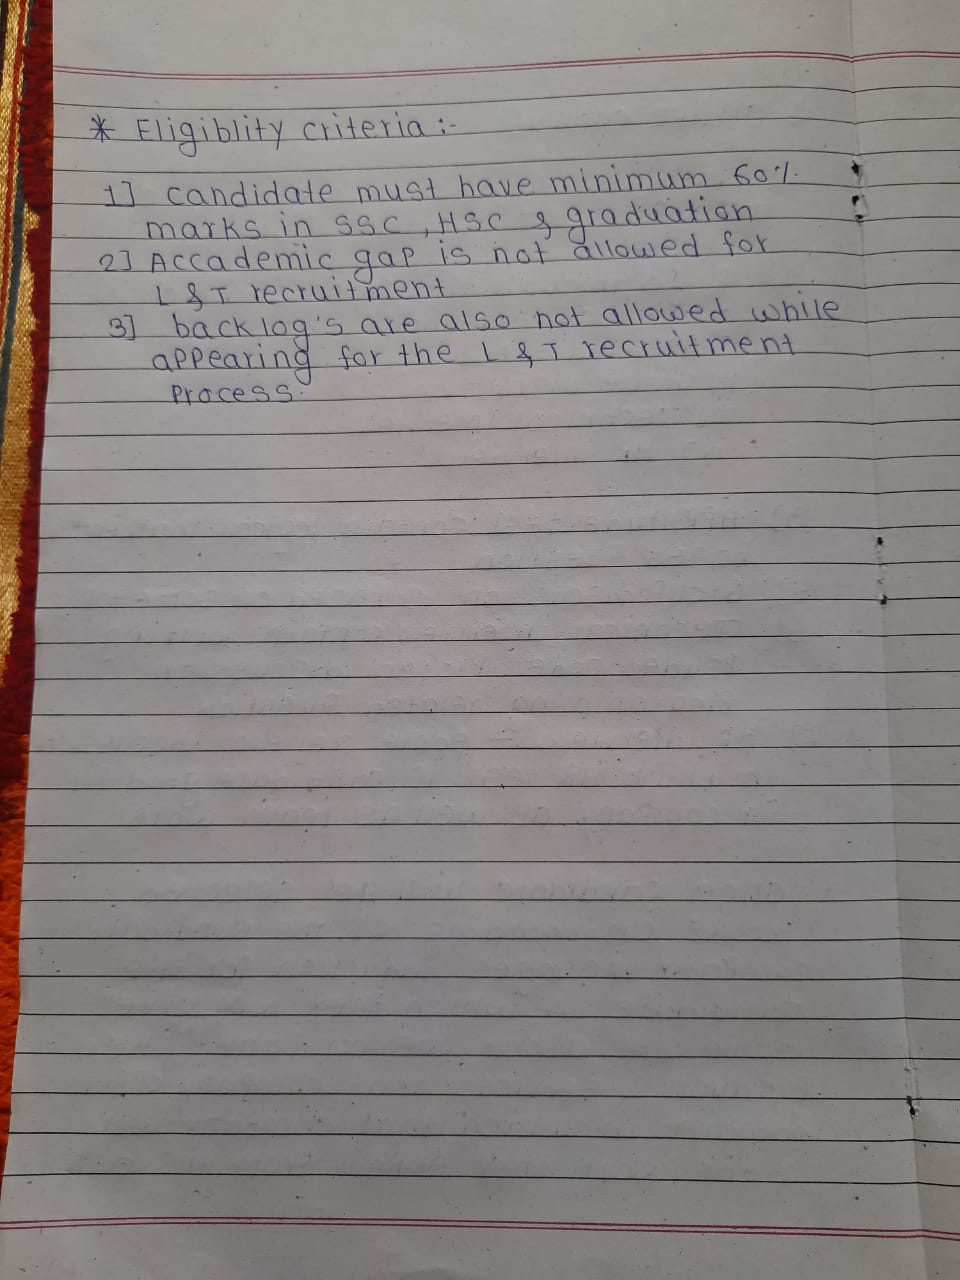 * Eligiblity criteria :-
1] candidate must have minimum 60%
marks in SSC, HSC & graduation
2] Accademic gap is not allowed for
L & T recruitment
3] backlog's are also not allowed while
appearing for the L & T recruitment
process.